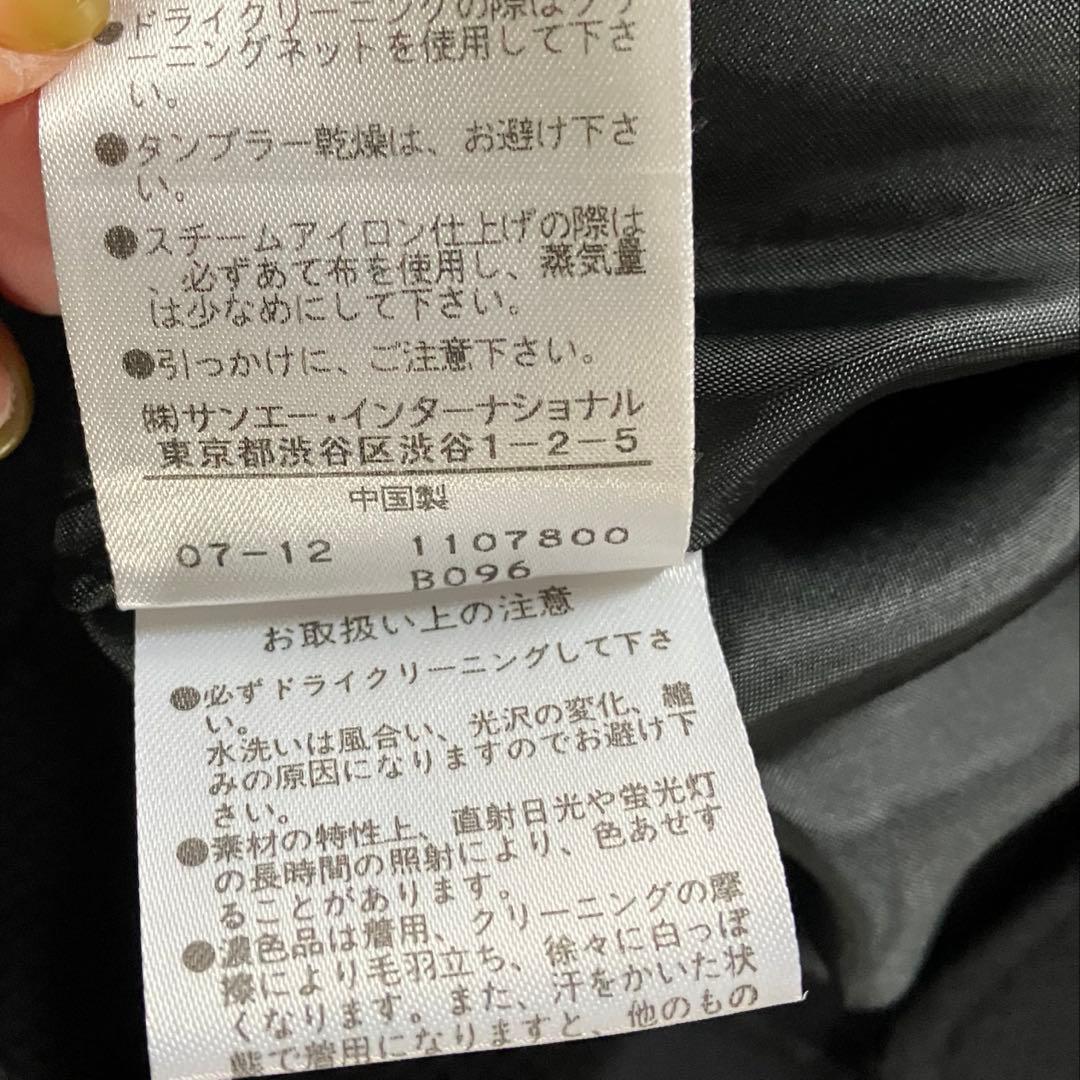 ●ドライクリーニングの際はクリ
ーニングネットを使用して下さ
い。
●タンブラー乾燥は、お避け下さ
い。
●スチームアイロン仕上げの際は
必ずあて布を使用し、蒸気量
は少なめにして下さい。
●引っかけに、ご注意下さい。
㈱サンエー・インターナショナル
東京都渋谷区渋谷1-2-5
中国製
07-12 1107800
B096
お取扱い上の注意
●必ずドライクリーニングして下さ
い。
水洗いは風合い、光沢の変化、縮
みの原因になりますのでお避け下
さい。
●素材の特性上、直射日光や蛍光灯
の長時間の照射により、色あせす
ることがあります。
●濃色品は着用、クリーニングの摩
擦により毛羽立ち、徐々に白っぽ
くなります。また、汗をかいた状
態で着用になりますと、他のもの